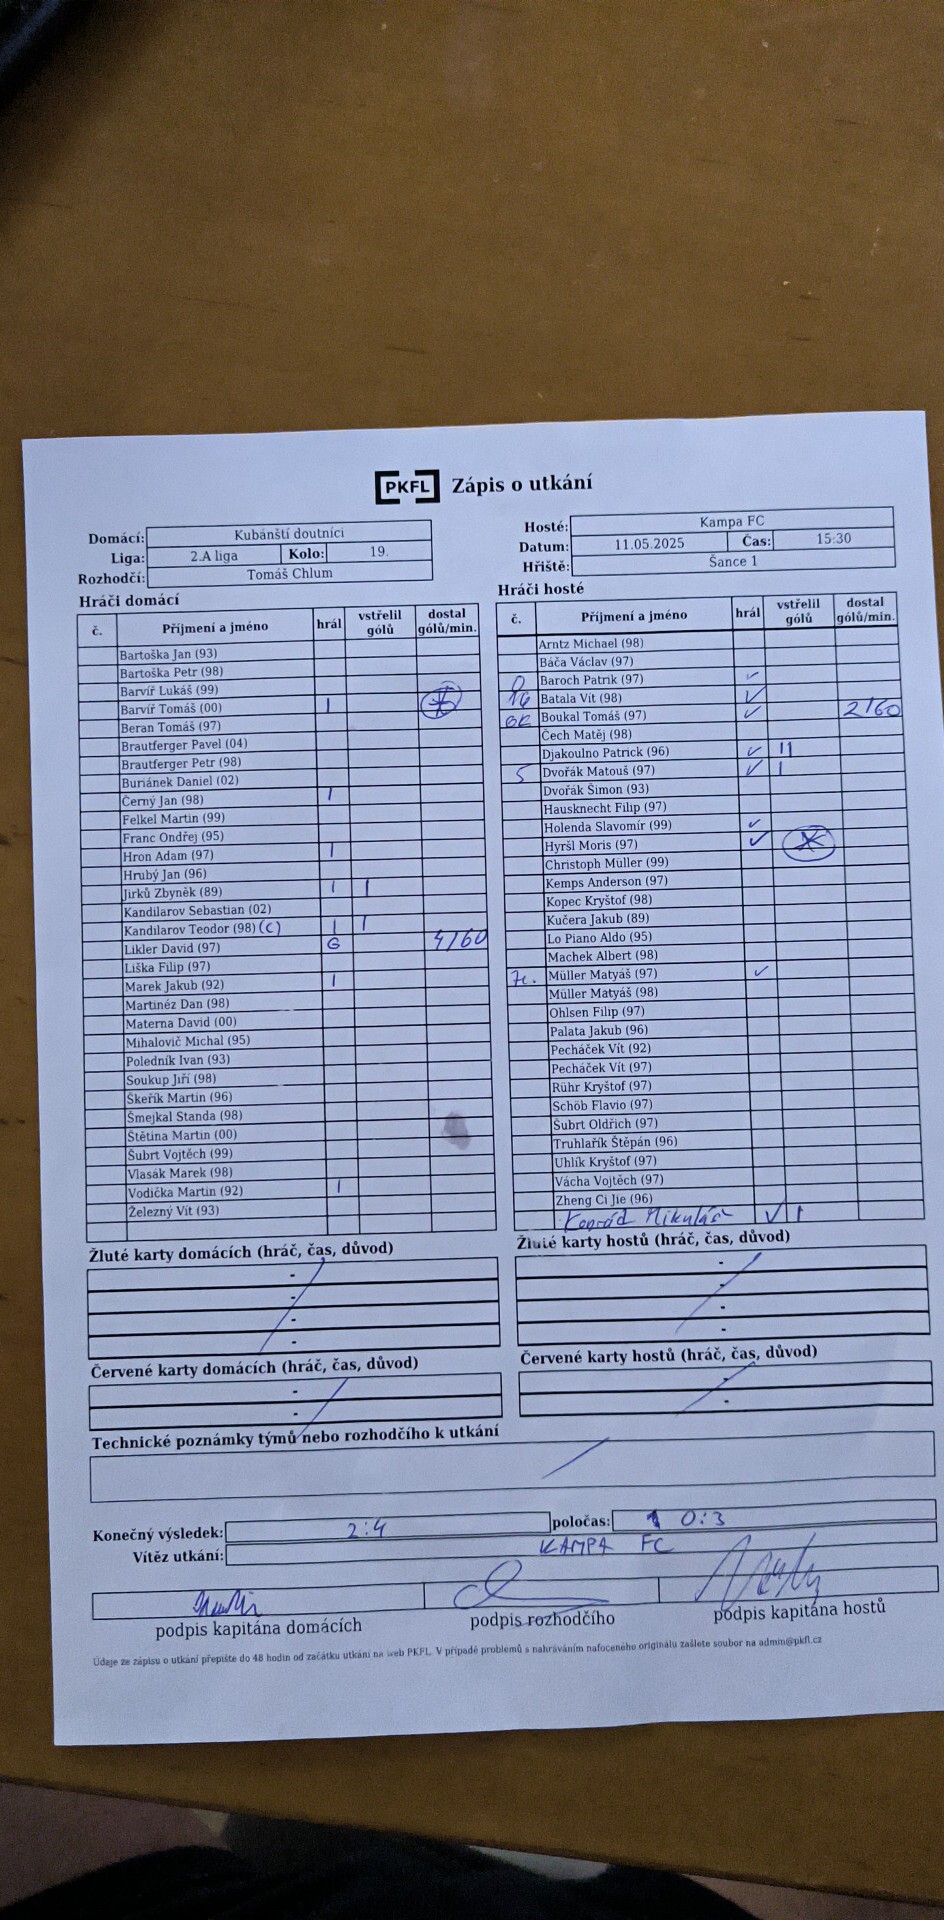 PKFL Zápis o utkání
Domácí: Kubánští doutníci
Liga: 2.A liga Kolo: 19.
Rozhodčí: Tomáš Chlum
Hosté: Kampa FC
Datum: 11.05.2025 Čas: 15:30
Hřiště: Šance 1
Hráči domácí
č. Příjmení a jméno hrál vstřelil gólů dostal gólů/min.
Bartoška Jan (93)
Bartoška Petr (98)
Barvíř Lukáš (99)
Barvíř Tomáš (00) 1
Beran Tomáš (97)
Brautferger Pavel (04)
Brautferger Petr (98)
Buriánek Daniel (02)
Černý Jan (98) 1
Felkel Martin (99)
Franc Ondřej (95)
Hron Adam (97) 1
Hrubý Jan (96)
Jirků Zbyněk (89) 1 1
Kandilarov Sebastian (02)
Kandilarov Teodor (98) (C) 1 1
Likler David (97) G 4/60
Liška Filip (97)
Marek Jakub (92) 1
Martinéz Dan (98)
Materna David (00)
Mihalovič Michal (95)
Poledník Ivan (93)
Soukup Jiří (98)
Škeřík Martin (96)
Šmejkal Standa (98)
Štětina Martin (00)
Šubrt Vojtěch (99)
Vlasák Marek (98)
Vodička Martin (92) 1
Železný Vít (93)
Hráči hosté
č. Příjmení a jméno hrál vstřelil gólů dostal gólů/min.
Arntz Michael (98)
Báča Václav (97)
Baroch Patrik (97) ✓
Batala Vít (98) ✓
Boukal Tomáš (97) ✓ 2/60
Čech Matěj (98)
Djakoulno Patrick (96) ✓ 11
5 Dvořák Matouš (97) ✓ 1
Dvořák Šimon (93)
Hausknecht Filip (97)
Holenda Slavomír (99) ✓
Hyršl Moris (97) ✓
Christoph Müller (99)
Kemps Anderson (97)
Kopec Kryštof (98)
Kučera Jakub (89)
Lo Piano Aldo (95)
Machek Albert (98)
7c. Müller Matyáš (97) ✓
Müller Matyáš (98)
Ohlsen Filip (97)
Palata Jakub (96)
Pecháček Vít (92)
Pecháček Vít (97)
Rühr Kryštof (97)
Schöb Flavio (97)
Šubrt Oldřich (97)
Truhlařík Štěpán (96)
Uhlík Kryštof (97)
Vácha Vojtěch (97)
Zheng Ci Jie (96)
Konrád Mikuláš ✓ 1
Žluté karty domácích (hráč, čas, důvod)
-
-
-
-
Žluté karty hostů (hráč, čas, důvod)
-
-
-
-
Červené karty domácích (hráč, čas, důvod)
-
-
Červené karty hostů (hráč, čas, důvod)
-
-
Technické poznámky týmů nebo rozhodčího k utkání
Konečný výsledek: 2:4 poločas: 0:3
Vítěz utkání: KAMPA FC
podpis kapitána domácích podpis rozhodčího podpis kapitána hostů
Údaje ze zápisu o utkání přepište do 48 hodin od začátku utkání na web PKFL. V případě problémů s nahráváním nafoceného originálu zašlete soubor na admin@pkfl.cz